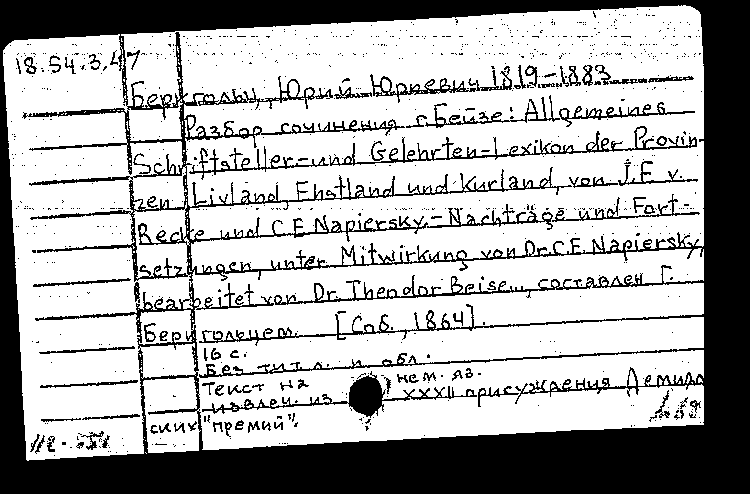 18.54.3.47
Беркгольц, Юрий Юрьевич 1819-1883
Разбор сочинения г. Бейзе: Allgemeines
Schriftsteller-und Gelehrten-Lexikon der Provin-
zen Livland, Ehstland und Kurland, von J.F. v.
Recke und C.E. Napiersky.-Nachträge und Fort-
setzungen, unter Mitwirkung von Dr. C.E. Napiersky,
bearbeitet von Dr. Theodor Beise..., составлен Г.
Беркгольцем. [Спб., 1864].
16 с.
Без тит. л. и обл.
Текст на нем. яз.
Извлеч. из XXXII присуждения Демидо
ских "премий".